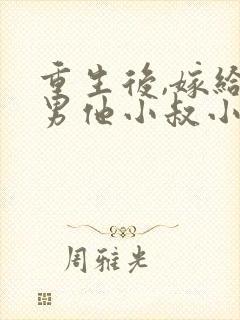 重生後,嫁給
男他小叔小
周雅光